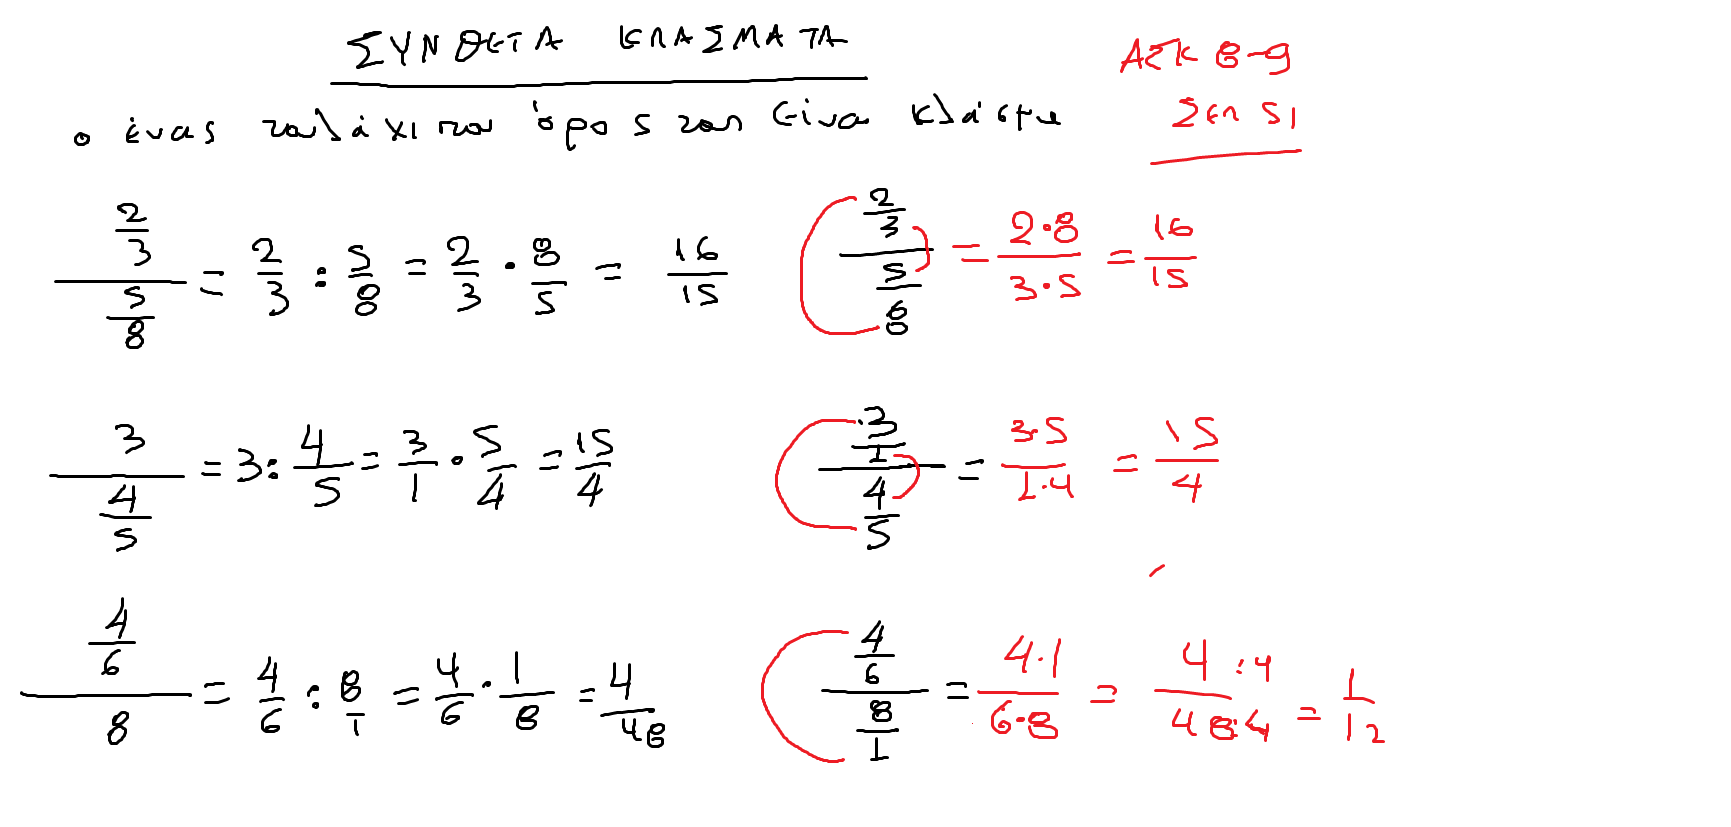 ΣΥΝΘΕΤΑ ΚΛΑΣΜΑΤΑ
ΑΣΚ 8-9
ΣΕΛ 51
ο ένας τουλάχιστον όρος του είναι κλάσμα
\frac{\frac{2}{3}}{\frac{5}{8}} = \frac{2}{3} : \frac{5}{8} = \frac{2}{3} · \frac{8}{5} = \frac{16}{15}
\frac{\frac{2}{3}}{\frac{5}{8}} = \frac{2·8}{3·5} = \frac{16}{15}
\frac{3}{\frac{4}{5}} = 3 : \frac{4}{5} = \frac{3}{1} · \frac{5}{4} = \frac{15}{4}
\frac{\frac{3}{1}}{\frac{4}{5}} = \frac{3·5}{1·4} = \frac{15}{4}
\frac{\frac{4}{6}}{8} = \frac{4}{6} : \frac{8}{1} = \frac{4}{6} · \frac{1}{8} = \frac{4}{48}
\frac{\frac{4}{6}}{\frac{8}{1}} = \frac{4·1}{6·8} = \frac{4:4}{48:4} = \frac{1}{12}